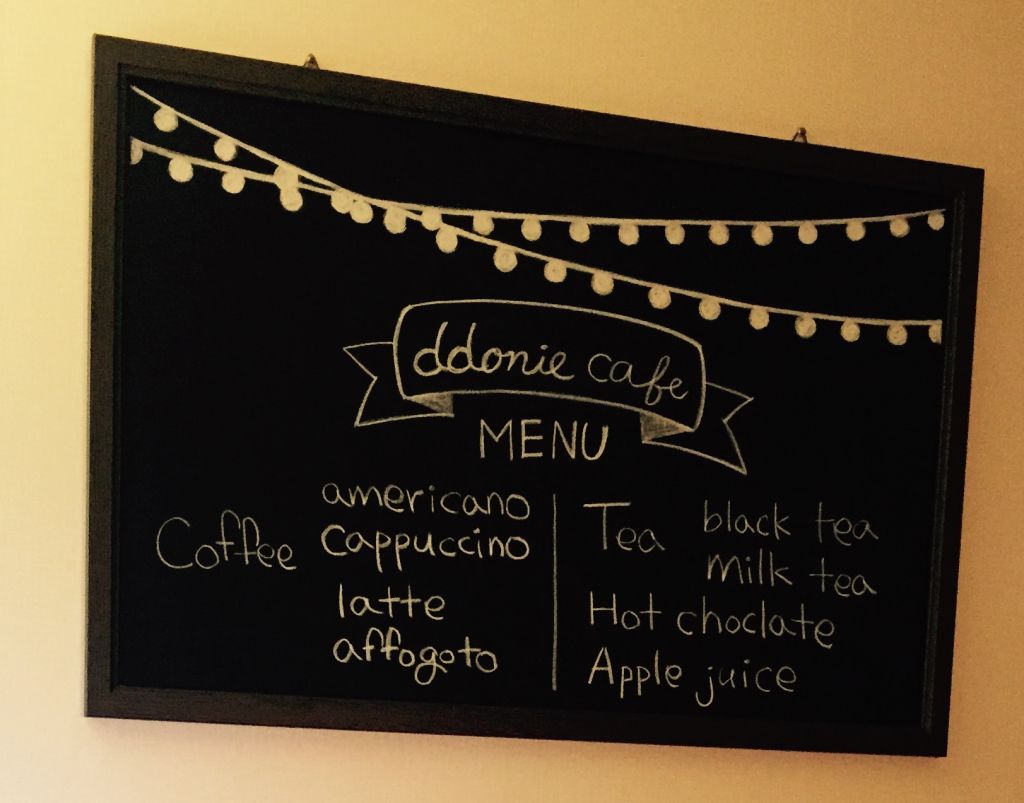 ddonie cafe
MENU
Coffee
americano
Cappuccino
latte
affogoto
Tea
black tea
milk tea
Hot choclate
Apple juice